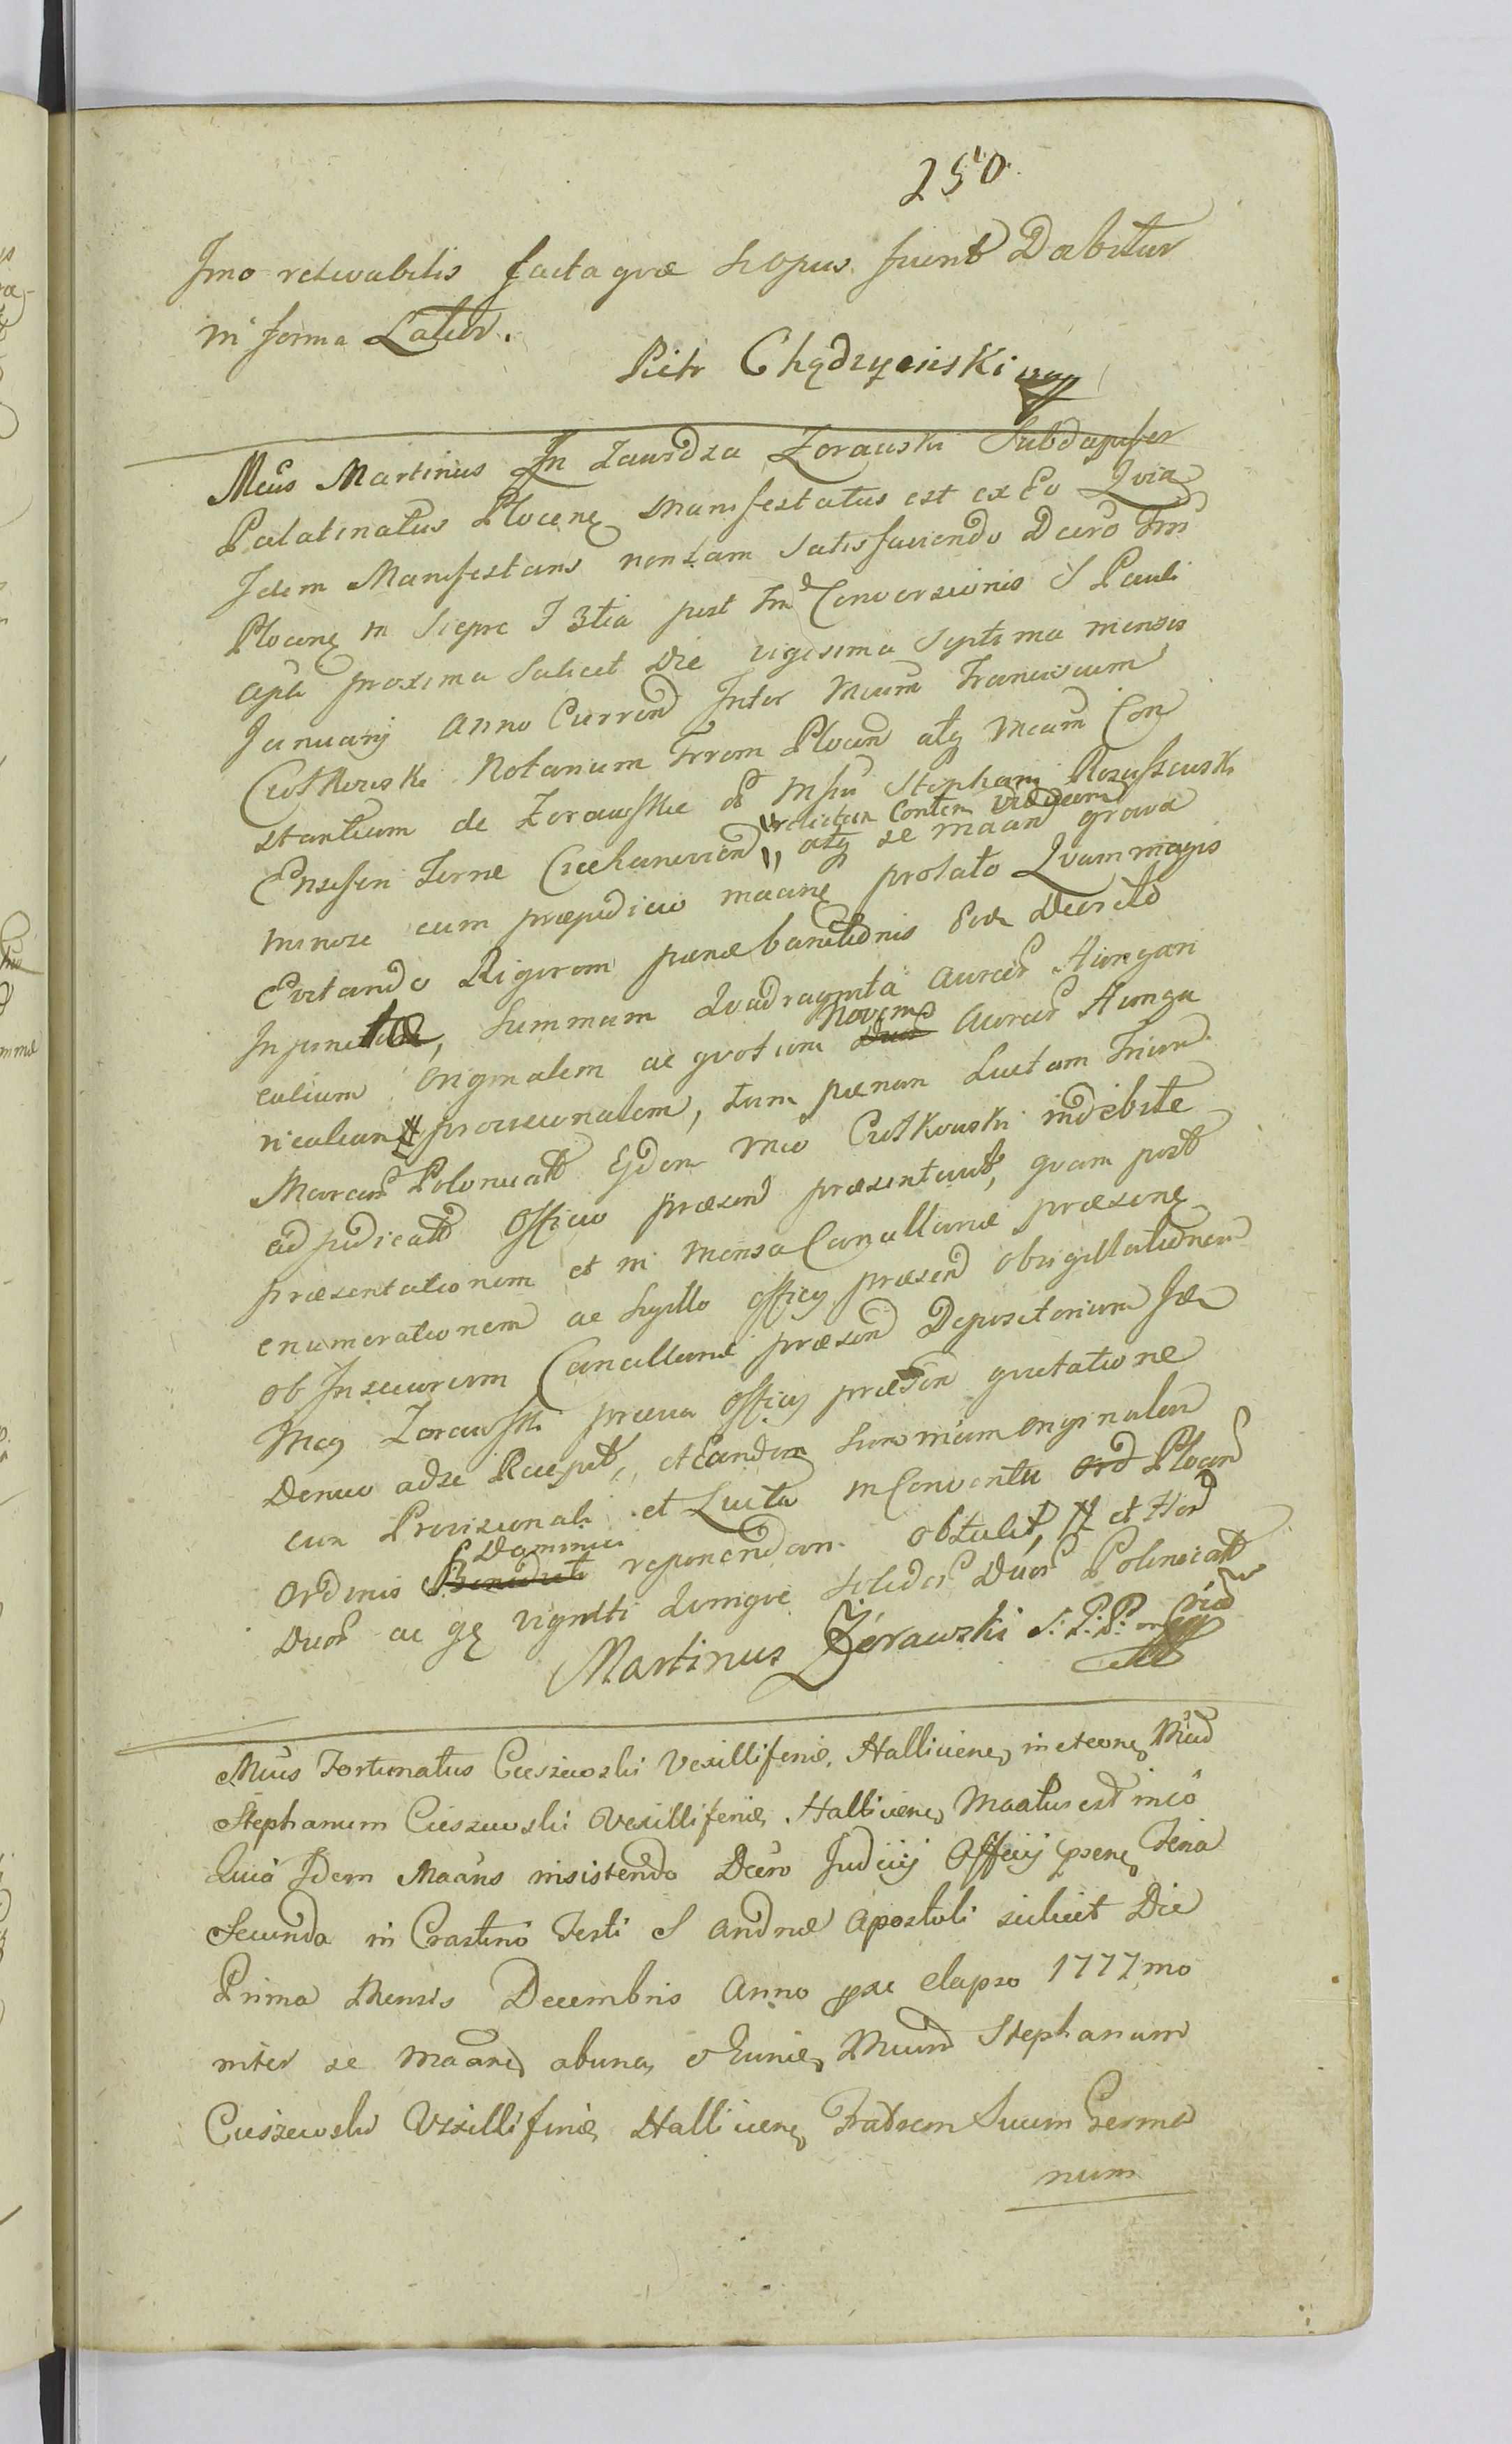 250.
Imo relevabilis factaque si opus fuerit Dabitur
in forma Latior.
Piotr Chądzyński mpp
Mcus Martinus In Zawidza Zorawski Subdapifer
Palatinatus Plocenę Manifestatus est ex Eo Quia
Idem Manifestans non tam satisfaciendo Decro Trri
Plocenę in Sieprc f 3tia post fm Conversionis S Pauli
Apli proxima scilicet Die vigesima septima mensis
January Anno Currend Inter Mcum Franciscum
Cutkowski Notarium Trrem Plocen atq Mcam Con
stantiam de Zorawskie olt Msci Stephani Roscissewski
Ensiferi Terrae Ciechanovien " relictam Conten viduam
" atq se maan gravae
minore cum praejudicio maanę prolato Quam magis
Evitando Rigorem paenae banitionis Eode Decreto
Injunctae, Summam Quadraginta Aureos Hungari
calium Originalem ac quotam Duos Novem Aureos Hunga
ricalium provisionalem, tum paenam Luctam Trium
Marcar Polonicatt Eidem Mco Cutkowski indebite
adjudicatt Officio praesend praesentavit, quam post
praesentationem et in Mensa Cancellariae praesenę
enumerationem ac Sigillo Officy praesend obsigillationem
ob Insecurim Cancellariae praesend Depositorium
Mcg Zorawski praevia Officy praesen quietatione
Denuo ad se Recepit, et Eandem Summam originalem
cum Provisionali et Lucta in Conventu Ord Plocen
Ordinis Benedicti Dominici reponendam obtulit, et Hor
Duos ac gę viginti Sumque solidos Duos Polonicatt
Martinus Zórawski S: P: P: mpp
Mcus Fortunatus Cieszewski Vexilliferidę Halliciensę in et eonę Mcud
Stephanum Cieszewski Vexilliferidę Hallicienę Maatus est in eo
Quia Idem Maans insistendo Decro Judicij Officij psenę Feria
Secunda in Crastino Festi S Andreae Apostoli scilicet Die
Prima Mensis Decembris Anno pxe elapso 1777mo
inter se Maanę ab una, Mcum Stephanum
Cieszewski Vexilliferidę Hallicienę Fratrem Suum Germa
num